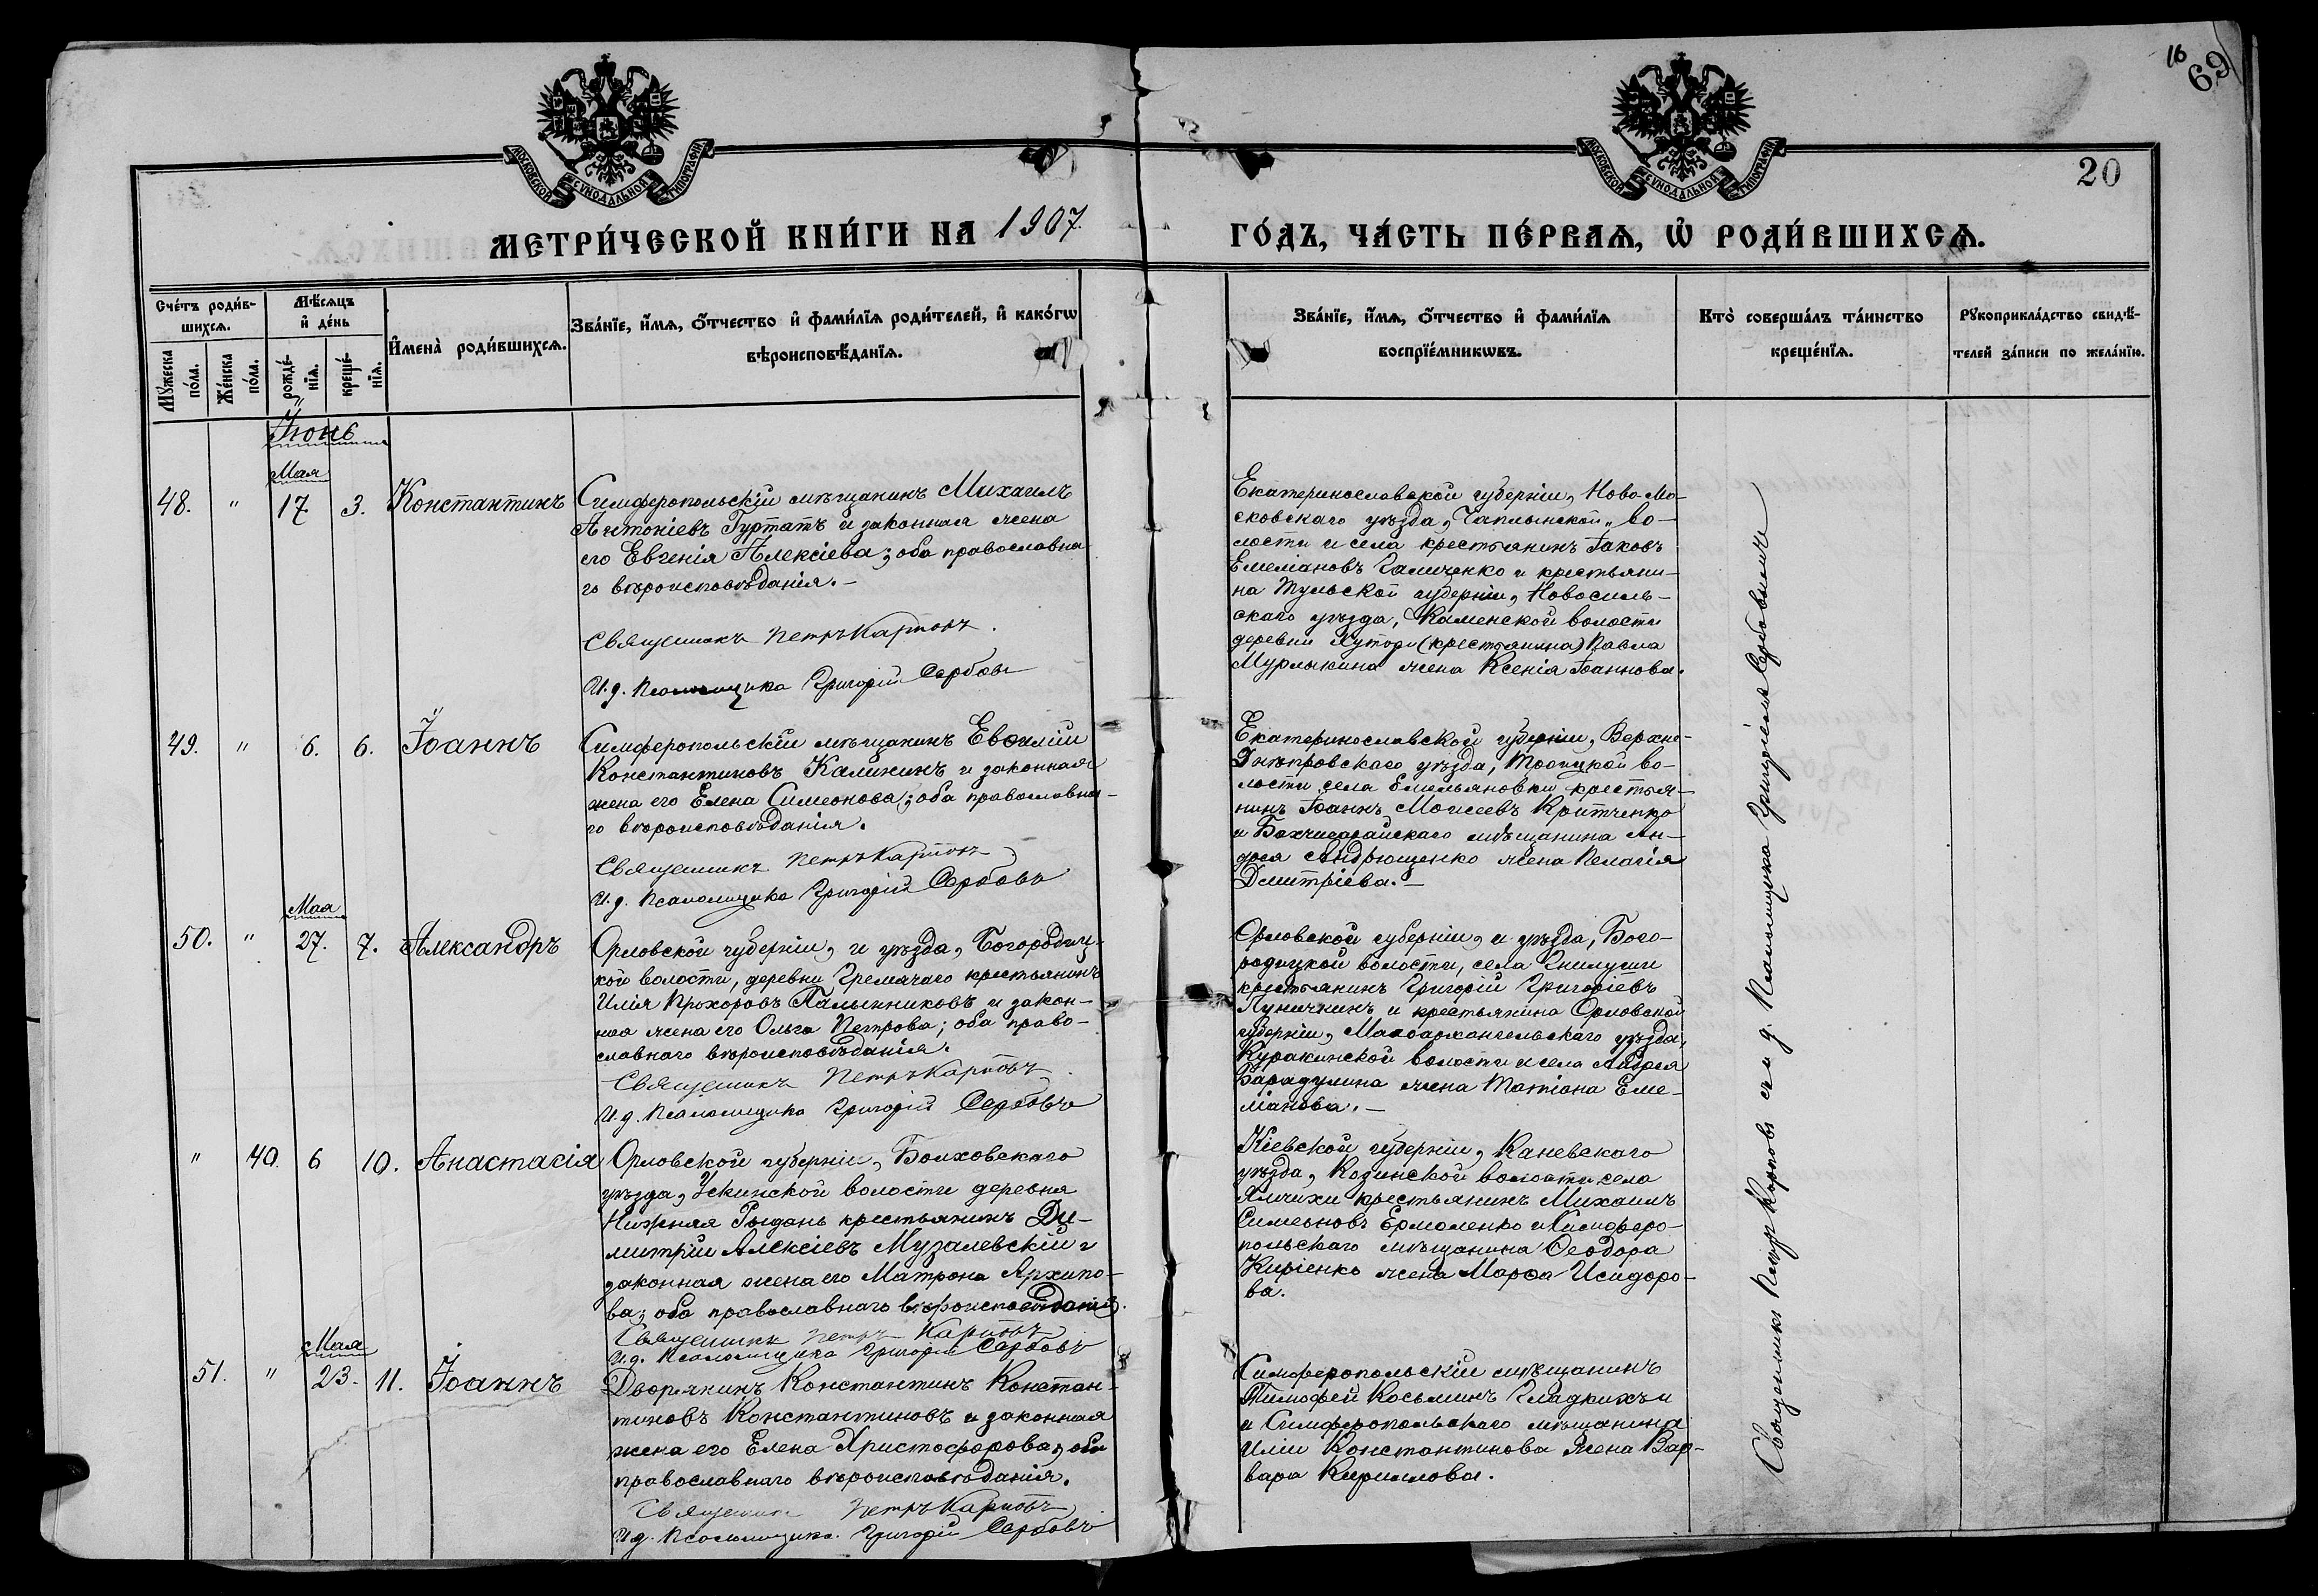 16
69
20
МОСКОВСКОЙ СУНОДАЛЬНОЙ ТИПОГРАФІИ
МОСКОВСКОЙ СУНОДАЛЬНОЙ ТИПОГРАФІИ
МЕТРИ́ЧЕСКОЙ КНИ́ГИ НА 1907.
ГО́ДЪ, ЧА́СТЬ ПЕ́РВАѦ, Ѡ҆ РОДИ́ВШИХСѦ.
Сче́тъ роди́в-
шихсѧ.
Мѣ́сѧцъ
и҆ де́нь
Мꙋ́жеска
по́ла.
Же́нска
по́ла.
рожде́-
нїѧ.
креще́-
нїѧ.
И҆мена̀ роди́вшихсѧ.
Зва́нїе, и҆́мѧ, ѻ҆́тчество и҆ фами́лїѧ роди́телей, и҆ како́гѡ
вѣроисповѣ́данїѧ.
Зва́нїе, и҆́мѧ, ѻ҆́тчество и҆ фами́лїѧ
воспрїе́мникѡвъ.
Кто̀ соверша́лъ та́инство
креще́нїѧ.
Рꙋкоприкла́дство свидѣ́-
телей за́писи по жела́нїю.
Іюнь
Мая
48. " 17 3. Константинъ
Симферопольскій мѣщанинъ Михаилъ
Антоніевъ Гуртатъ и законная жена
его Евгенія Алексіева; оба православна
го вѣроисповѣданія.–
Священникъ Петръ Карповъ.
И. д. Псаломщика Григорій Сербовъ
Екатеринославской губерніи, Ново-Мо-
сковскаго уѣзда, Чаплынской" во-
лости и села крестьянинъ Іаковъ
Емеліановъ Галиченко и крестьяни-
на Тульской губерніи, Новосиль-
скаго уѣзда, Каменской волости
деревни Хутори (крестьянина) Павла
Мурлыкина жена Ксенія Іоаннова.
49. " 6. 6. Іоаннъ
Симферопольскій мѣщанинъ Евѳимій
Константиновъ Калининъ и законная
жена его Елена Симеонова; оба православна-
го вѣроисповѣданія.
Священникъ Петръ Карповъ
И. д. Псаломщика Григорій Сербовъ
Екатеринославской губерніи, Верхне-
Днѣпровскаго уѣзда, Троицкой во-
лости села Емельяновки крестья-
нинъ Іоаннъ Моисеевъ Критченко
и Бахчисарайскаго мѣщанина Ан-
дрея Андрющенко жена Пелагія
Дмитріева.–
Мая
50. " 27. 7. Александръ
Орловской губерніи, и уѣзда, Богородиц-
кой волости, деревни Гремячаго крестьянинъ
Илія Прохоровъ Пальчиковъ и закон-
ная жена его Ольга Петрова; оба право-
славнаго вѣроисповѣданія.
Священникъ Петръ Карповъ
И. д. Псаломщика Григорій Сербовъ
Орловской губерніи, и уѣзда, Бого-
родицкой волости, села Гнилуши
крестьянинъ Григорій Григоріевъ
Луничкинъ и крестьянина Орловской
губерніи, Малоархангельскаго уѣзда,
Куракинской волости и села Андрея
Барадулина жена Татіана Еме-
ліанова.–
" 40. 6 10. Анастасія
Орловской губерніи, Болховскаго
уѣзда, Ускинской волости деревня
Нижняя Рыдань крестьянинъ Ди-
митрій Алексіевъ Музалевскій и
законная жена его Матрона Архипо-
ва; оба православнаго вѣроисповѣданія.
Священникъ Петръ Карповъ
И. д. Псаломщика Григорій Сербовъ
Кіевской губерніи, Каневскаго
уѣзда, Козинской волости села
Ямчихи крестьянинъ Михаилъ
Симеоновъ Ермоленко и Симферо-
польскаго мѣщанина Ѳеодора
Киріенко жена Марѳа Исидоро-
ва.
Мая
51. " 23. 11. Іоаннъ
Дворянинъ Константинъ Констан-
тиновъ Константиновъ и законная
жена его Елена Христофорова; оба
православнаго вѣроисповѣданія.
Священникъ Петръ Карповъ
И. д. Псаломщика Григорій Сербовъ
Симферопольскій мѣщанинъ
Тимофей Косьминъ Гладкихъ и
и Симферопольскаго мѣщанина
Иліи Константинова жена Вар-
вара Кириллова.
Священникъ Петръ Карповъ съ и. д. Псаломщика Григоріемъ Сербовымъ